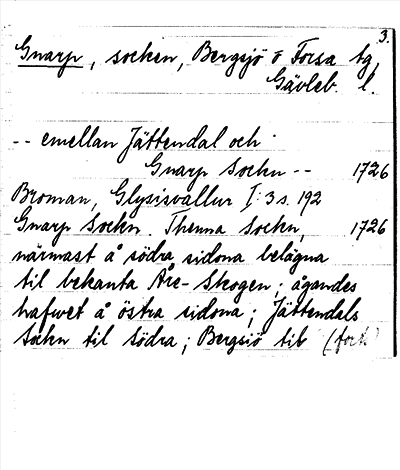 3.
Gnarp, socken, Bergsjö o Forsa tg,
Gävleb. l.
-- emellan Jättendal och
Gnarp Sockn -- 1726
Broman, Glysisvallur I: 3 s. 192
Gnarp Sockn. Thenna Sockn, 1726
närmast å södra sidona belägna
til bekanta Åre-Skogen; ägandes
hafwet å östra sidona; Jättendals
Sockn til södra; Bergsiö til (forts)